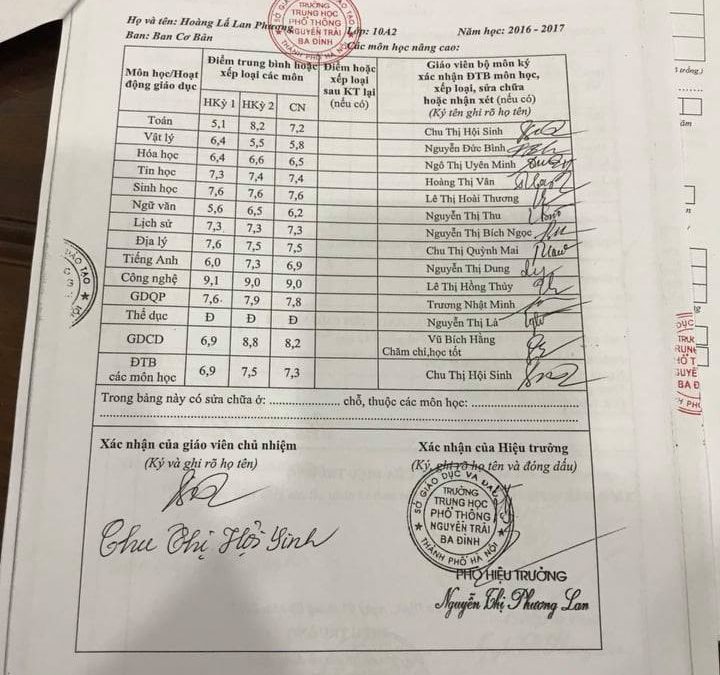 Họ và tên: Hoàng Lã Lan Phượng
Lớp: 10A2
Năm học: 2016 - 2017
Ban: Ban Cơ Bản
Các môn học nâng cao:
TRƯỜNG
TRUNG HỌC
PHỔ THÔNG
NGUYỄN TRÃI
BA ĐÌNH
THÀNH PHỐ HÀ NỘI
Môn học/Hoạt động giáo dục
Điểm trung bình hoặc xếp loại các môn
Điểm hoặc xếp loại sau KT lại (nếu có)
Giáo viên bộ môn ký xác nhận ĐTB môn học, xếp loại, sửa chữa hoặc nhận xét (nếu có)
(Ký tên ghi rõ họ tên)
HKỳ 1 HKỳ 2 CN
Toán 5,1 8,2 7,2 Chu Thị Hội Sinh
Vật lý 6,4 5,5 5,8 Nguyễn Đức Bình
Hóa học 6,4 6,6 6,5 Ngô Thị Uyên Minh
Tin học 7,3 7,4 7,4 Hoàng Thị Vân
Sinh học 7,6 7,6 7,6 Lê Thị Hoài Thương
Ngữ văn 5,6 6,5 6,2 Nguyễn Thị Thu
Lịch sử 7,3 7,3 7,3 Nguyễn Thị Bích Ngọc
Địa lý 7,6 7,5 7,5 Chu Thị Quỳnh Mai
Tiếng Anh 6,0 7,3 6,9 Nguyễn Thị Dung
Công nghệ 9,1 9,0 9,0 Lê Thị Hồng Thủy
GDQP 7,6 7,9 7,8 Trương Nhật Minh
Thể dục Đ Đ Đ Nguyễn Thị Lả
GDCD 6,9 8,8 8,2 Vũ Bích Hằng
Chăm chỉ,học tốt
ĐTB các môn học 6,9 7,5 7,3 Chu Thị Hội Sinh
Trong bảng này có sửa chữa ở: .................... chỗ, thuộc các môn học: ..............................
Xác nhận của giáo viên chủ nhiệm
(Ký và ghi rõ họ tên)
Chu Thị Hội Sinh
Xác nhận của Hiệu trưởng
(Ký, ghi rõ họ tên và đóng dấu)
SỞ GIÁO DỤC VÀ ĐÀO TẠO
TRƯỜNG
TRUNG HỌC
PHỔ THÔNG
NGUYỄN TRÃI
BA ĐÌNH
THÀNH PHỐ HÀ NỘI
PHÓ HIỆU TRƯỞNG
Nguyễn Thị Phương Lan